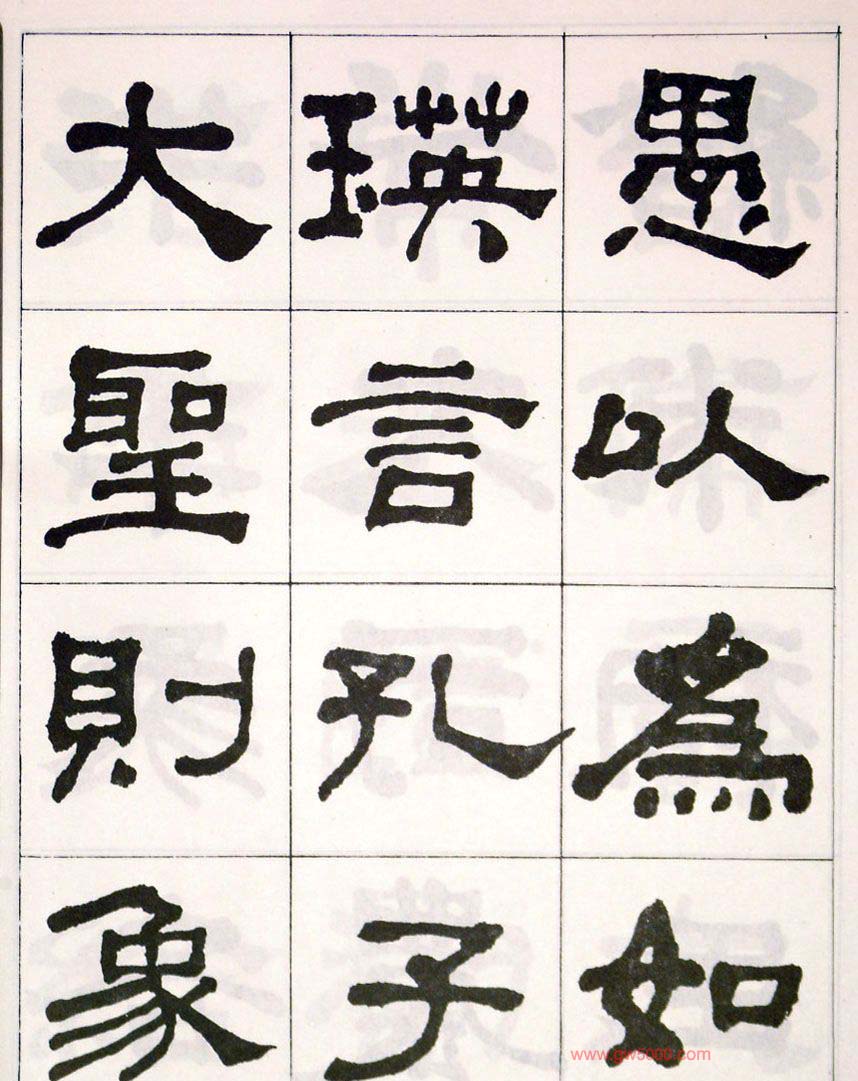 愚以為如
瑛言孔子
大聖則象
www.gw5000.com